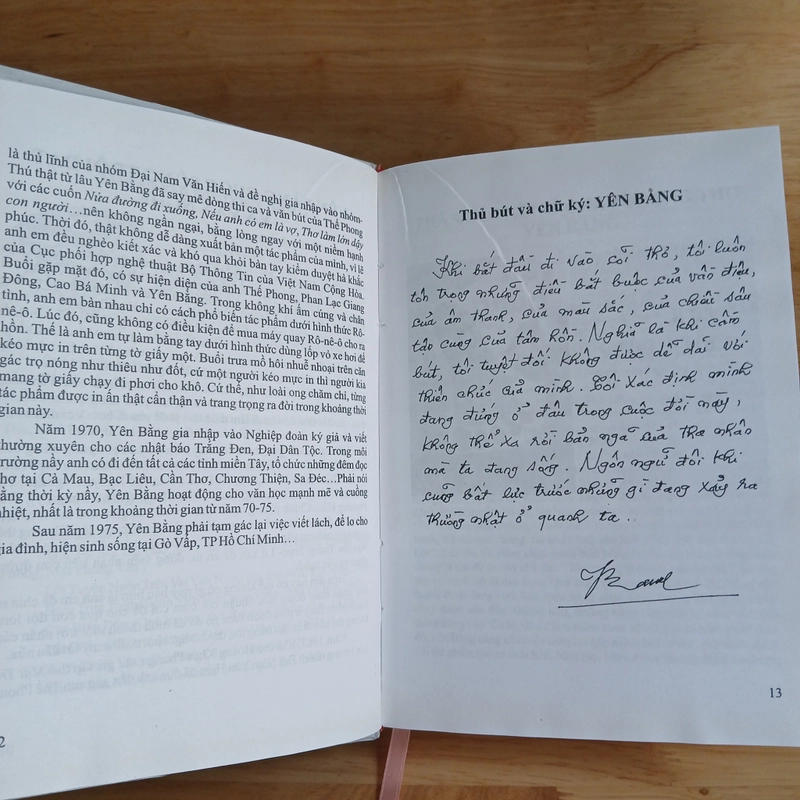 là thủ lĩnh của nhóm Đại Nam Văn Hiến và đề nghị gia nhập vào nhóm-
Thú thật từ lâu Yên Bằng đã say mê dòng thi ca và văn bút của Thế Phong
với các cuốn Nửa đường đi xuống, Nếu anh có em là vợ, Thơ làm lớn dậy
con người…nên không ngần ngại, bằng lòng ngay với một niềm hạnh
phúc. Thời đó, thật không dễ dàng xuất bản một tác phẩm của mình, vì lẽ
anh em đều nghèo kiết xác và khó qua khỏi bàn tay kiểm duyệt hà khắc
của Cục phối hợp nghệ thuật Bộ Thông Tin của Việt Nam Cộng Hòa.
Buổi gặp mặt đó, có sự hiện diện của anh Thế Phong, Phan Lạc Giang
Đông, Cao Bá Minh và Yên Bằng. Trong không khí ấm cúng và chân
tình, anh em bàn nhau chỉ có cách phổ biến tác phẩm dưới hình thức Rô-
nê-ô. Lúc đó, cũng không có điều kiện để mua máy quay Rô-nê-ô cho ra
hồn. Thế là anh em tự làm bằng tay dưới hình thức dùng lốp vỏ xe hơi để
kéo mực in trên từng tờ giấy một. Buổi trưa mồ hôi nhuễ nhoại trên căn
gác trọ nóng như thiêu như đốt, cứ một người kéo mực in thì người kia
mang tờ giấy chạy đi phơi cho khô. Cứ thế, như loài ong chăm chỉ, từng
tác phẩm được in ấn thật cẩn thận và trang trọng ra đời trong khoảng thời
gian này.
Năm 1970, Yên Bằng gia nhập vào Nghiệp đoàn ký giả và viết
thường xuyên cho các nhật báo Trắng Đen, Đại Dân Tộc. Trong môi
trường nầy anh có đi đến tất cả các tỉnh miền Tây, tổ chức những đêm đọc
thơ tại Cà Mau, Bạc Liêu, Cần Thơ, Chương Thiện, Sa Đéc…Phải nói
rằng thời kỳ nầy, Yên Bằng hoạt động cho văn học mạnh mẽ và cuồng
nhiệt, nhất là trong khoảng thời gian từ năm 70-75.
Sau năm 1975, Yên Bằng phải tạm gác lại việc viết lách, để lo cho
gia đình, hiện sinh sống tại Gò Vấp, TP Hồ Chí Minh…
2
Thủ bút và chữ ký: YÊN BẰNG
Khi bắt đầu đi vào cõi thơ, tôi luôn
tôn trọng những điều bắt buộc của vần điệu,
của âm thanh, của màu sắc, của chiều sâu
tận cùng của tâm hồn. Nghĩa là khi cầm
bút, tôi tuyệt đối không được dễ dãi với
thiên chức của mình. Tôi xác định mình
đang đứng ở đâu trong cuộc đời này,
không thể xa rời bản ngã của tha nhân
mà ta đang sống. Ngôn ngữ đôi khi
cũng bất lực trước những gì đang xảy ra
thường nhật ở quanh ta..
13